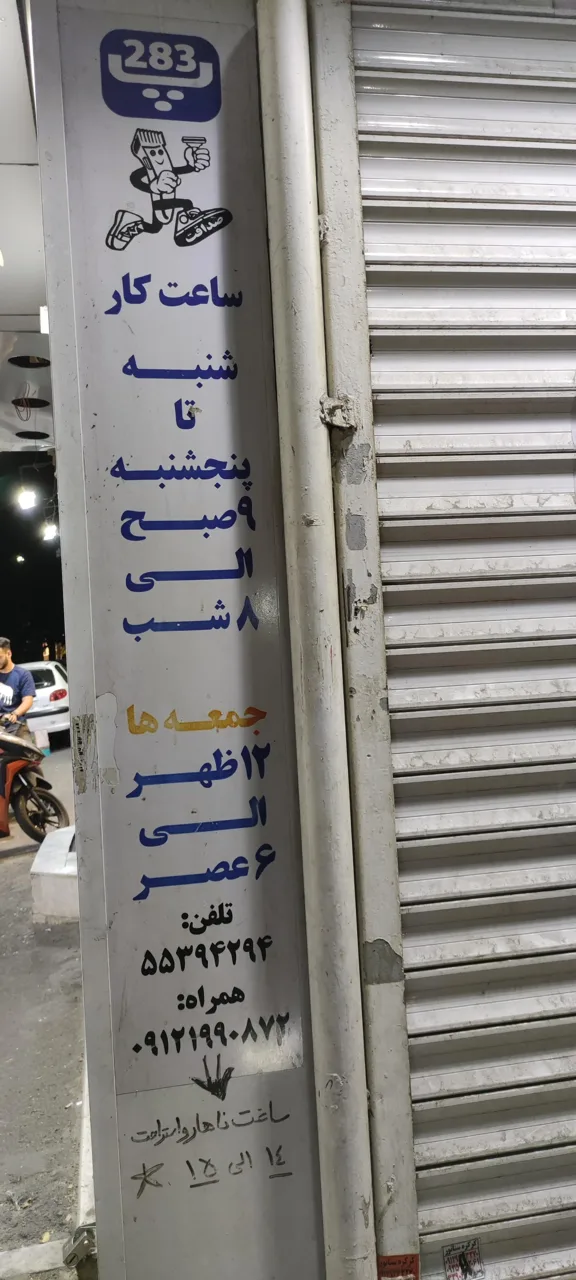 283
صداقت
ساعت کار
شنبه
تا
پنجشنبه
۹ صبح
الی
۸ شب
جمعه ها
۱۲ ظهر
الی
۶ عصر
تلفن:
۵۵۳۹۴۲۹۴
همراه:
۰۹۱۲۱۹۹۰۸۷۲
ساعت ناهار و استراحت
۱٤ الی ۱۵